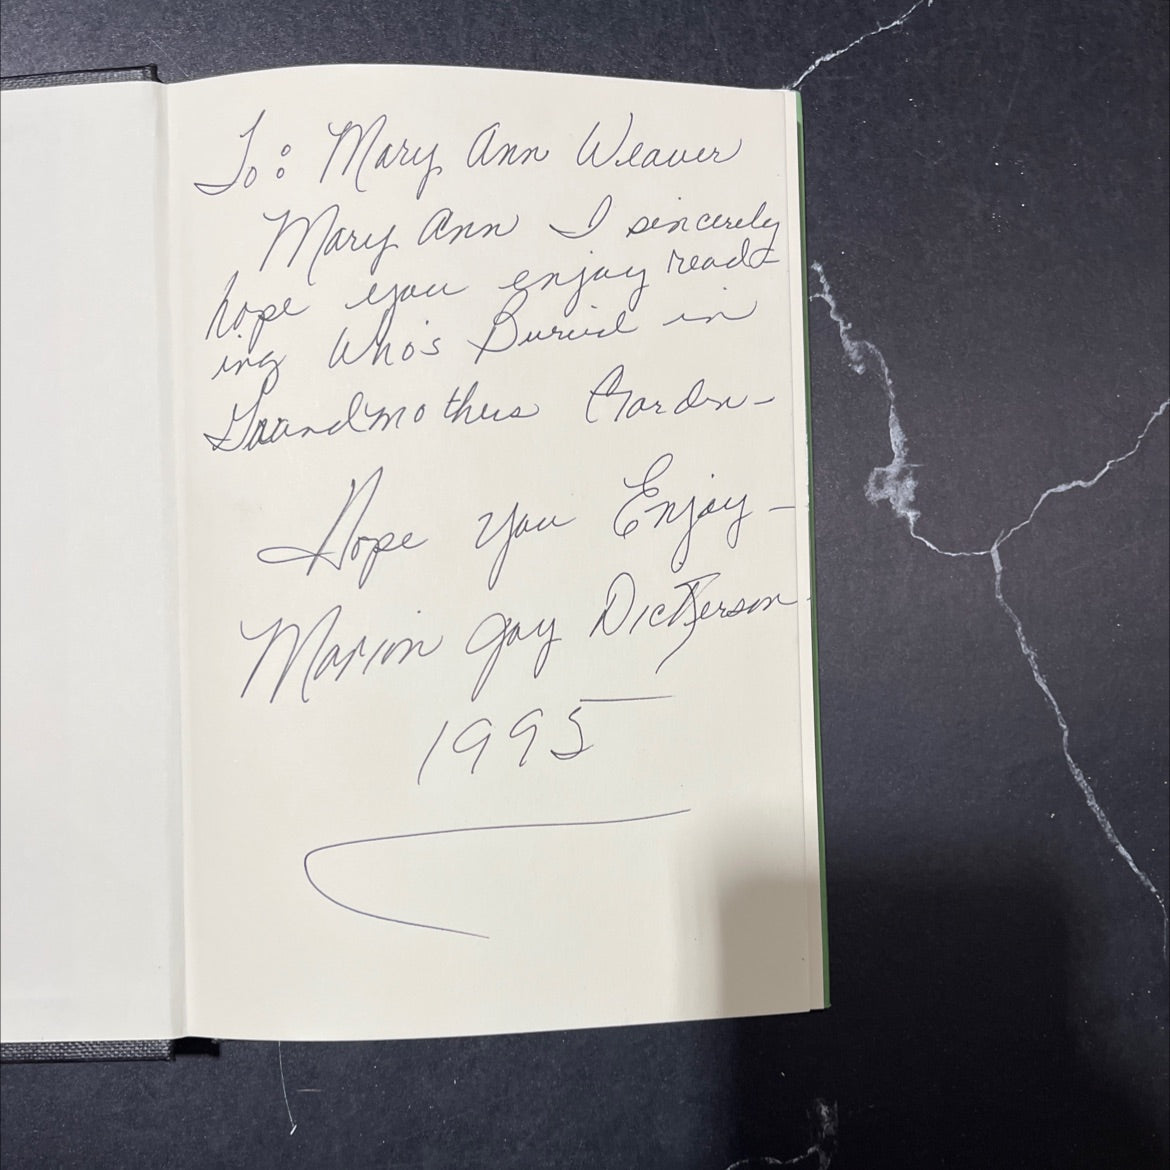 To: Mary Ann Weaver
Mary Ann I sincerely
hope you enjoy read-
ing Who's Buried in
Grandmothers Garden-
Hope you Enjoy-
Marion Gay Dickerson
1995